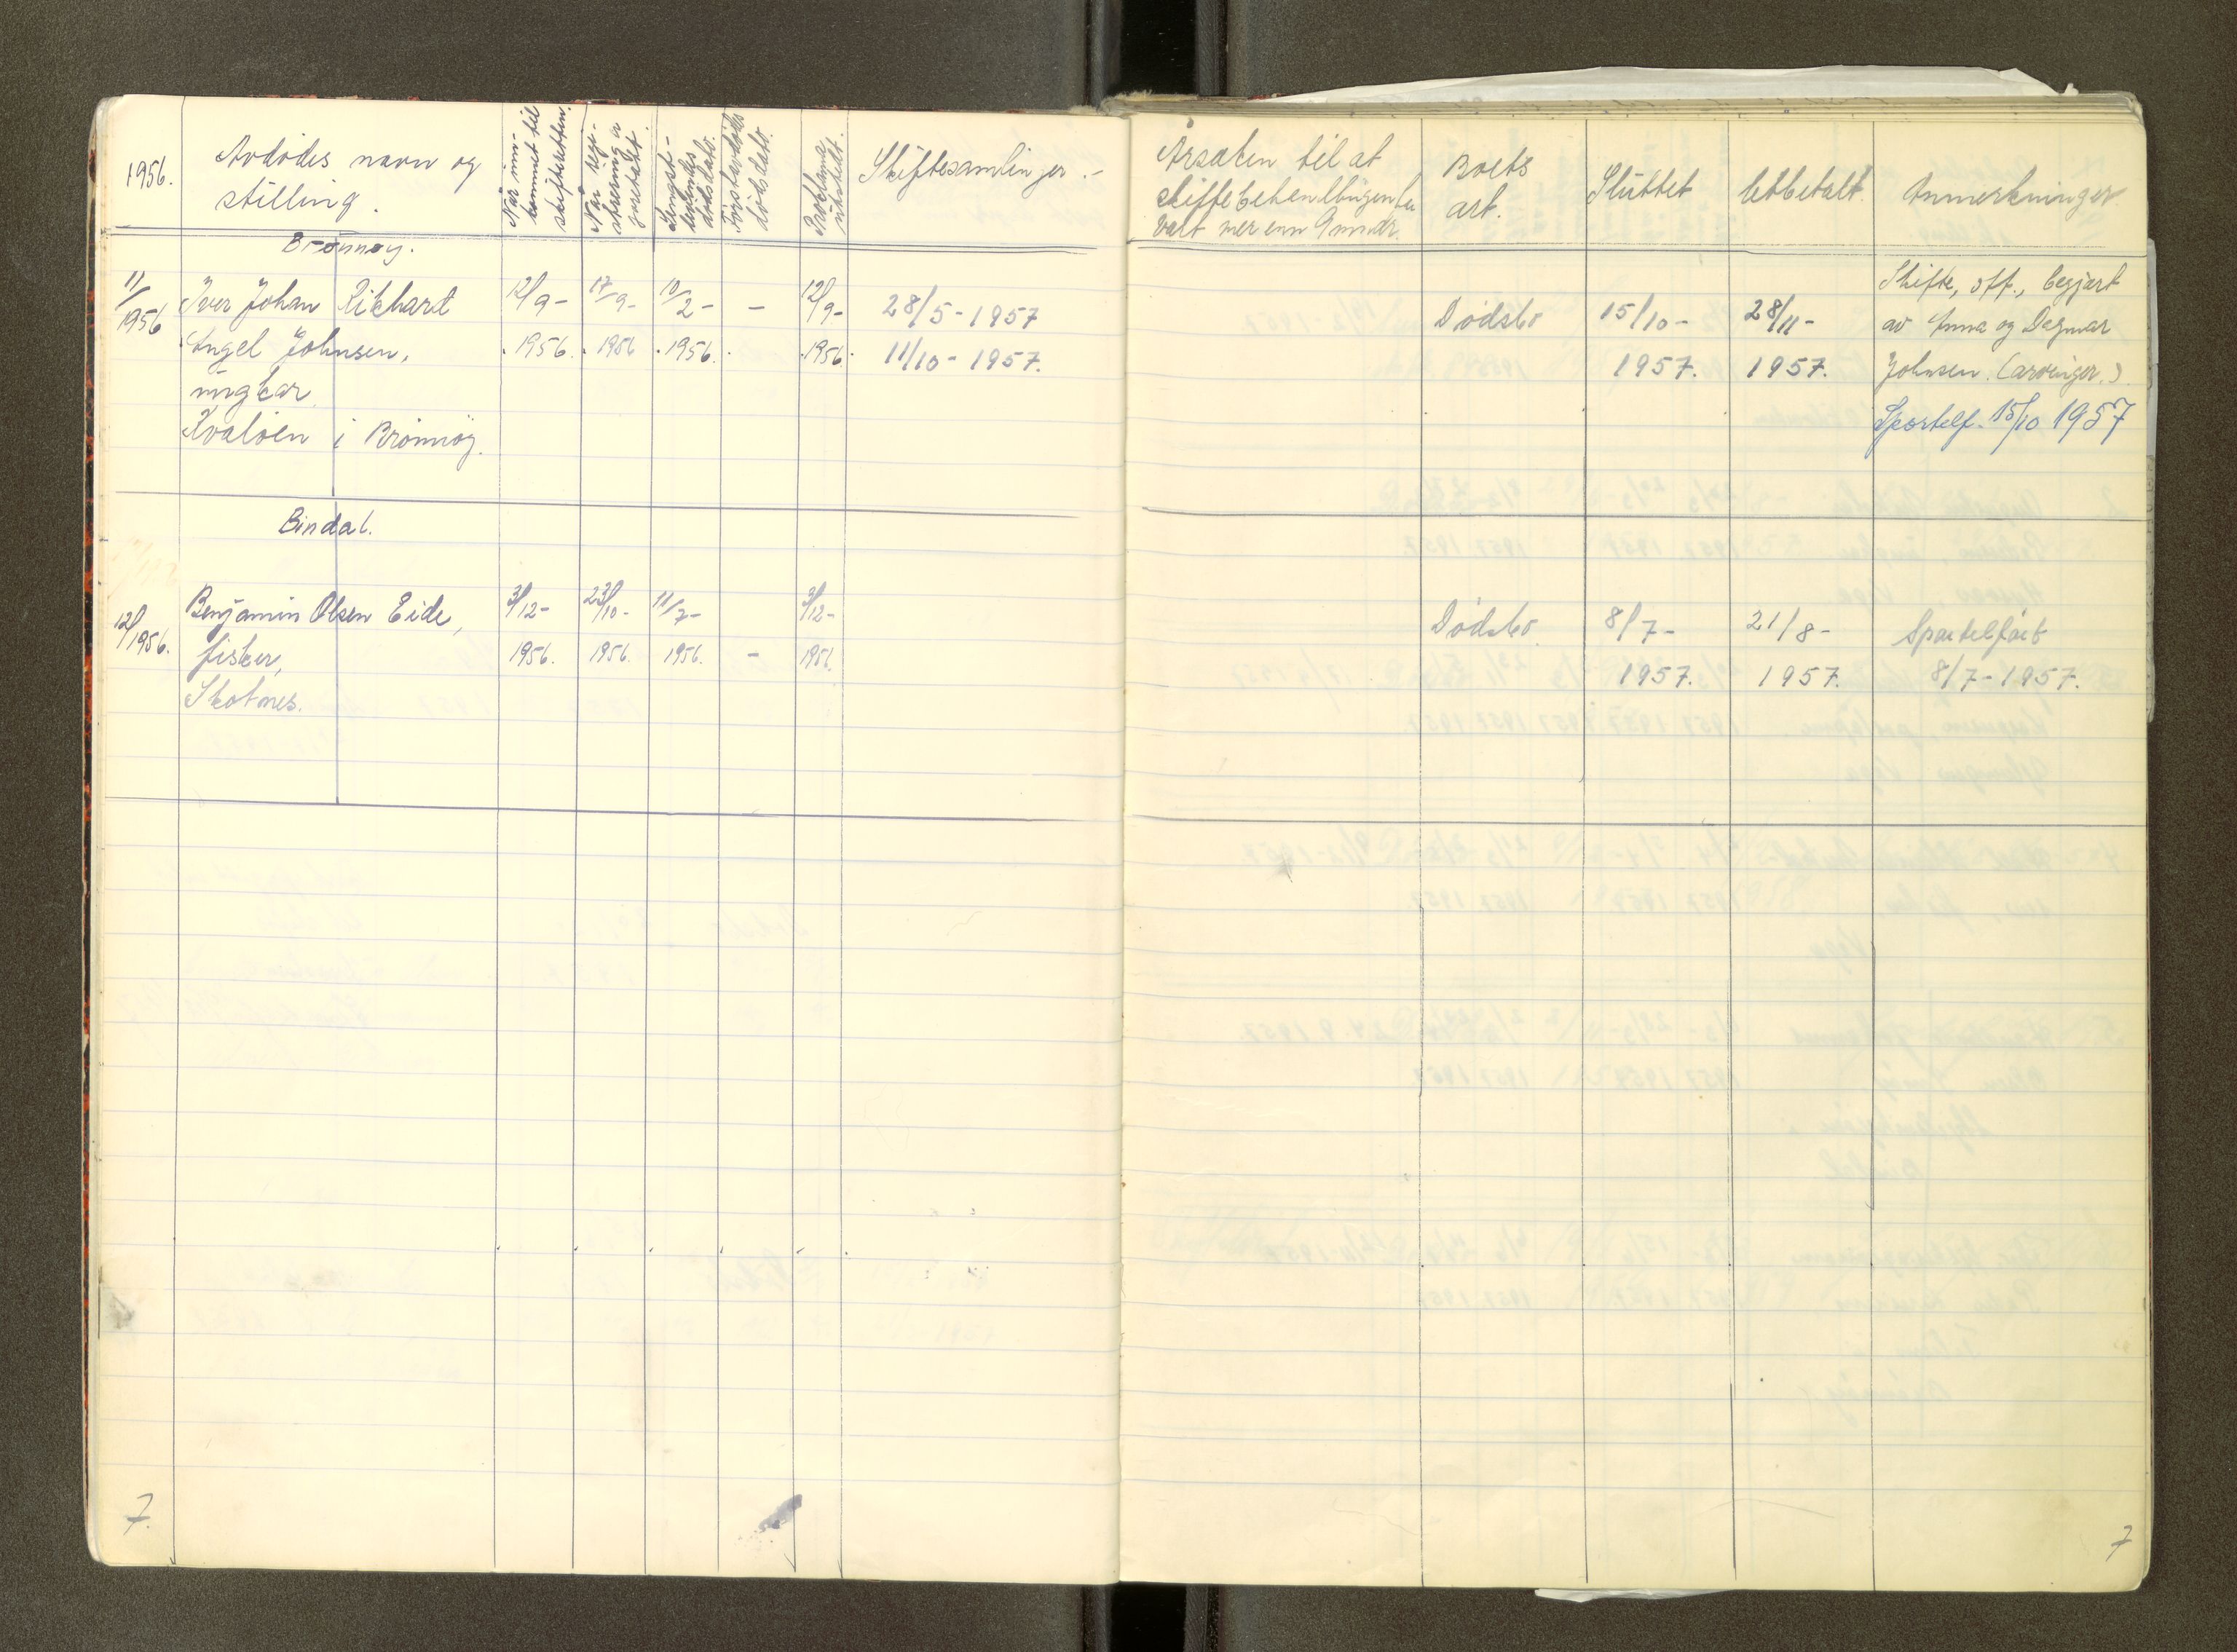 1956.
Avdødes navn og
stilling.
Når inn-
kommet til
skifteretten.
Når regi-
strering er
foretatt.
Lengst-
levendes
dødsdato.
Førstavdødes
dødsdato.
Proklama
utstedt.
Skiftesamlinger.-
Årsaken til at
skiftebehandlingen har
vart mer enn 9 mndr.
Boets
art.
Sluttet
Utbetalt.
Anmerkninger.
Brønnøy.
11/
1956
Iver Johan Rikhart
Angel Johnsen,
ungkar
Kvaløen i Brønnøy.
12/9-
1956.
17/9-
1956
10/2-
1956.
-
12/9-
1956.
28/5-1957
11/10-1957.
Dødsbo
15/10-
1957.
28/11-
1957.
Skifte, off., begjært
av Anna og Dagmar
Johnsen. (arvinger.)
Sportelf. 15/10 1957
Bindal.
12/1956.
Benjamin Olsen Eide,
fisker,
Skotnes.
3/12-
1956.
23/10-
1956.
11/7-
1956.
-
3/12-
1956.
Dødsbo
8/7-
1957.
21/8-
1957.
Sportelført
8/7-1957.
7.
7